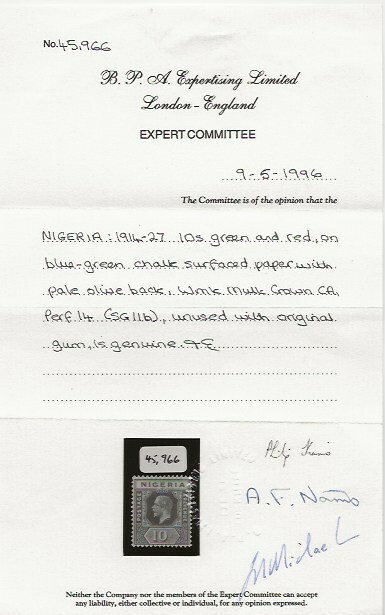 No. 45,966
B. P. A. Expertising Limited
London - England
EXPERT COMMITTEE
9-5-1996
The Committee is of the opinion that the
NIGERIA: 1914-27 10s green and red, on
blue-green chalk surfaced paper with
pale olive back, Wmk Mult Crown CA,
Perf 14 (SG 11b), unused with original
gum, is genuine.
45,966
NIGERIA
POSTAGE
REVENUE
10
LIMITED
Neither the Company nor the members of the Expert Committee can accept
any liability, either collective or individual, for any opinion expressed.